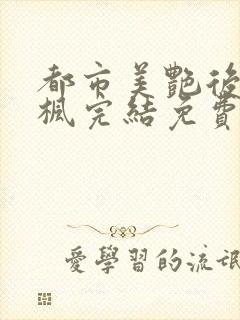 都市美艷後
楓完結免費
愛學習的流氓